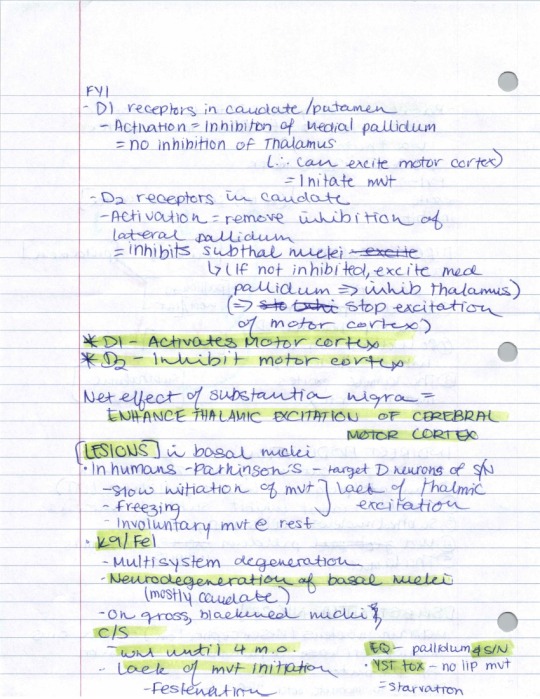 FYI
- D1 receptors in caudate/putamen
- Activation = Inhibiton of Medial pallidum
= no inhibition of Thalamus
(∴ can excite motor cortex)
= Initate mvt
- D2 receptors in caudate
- Activation = remove inhibition of
lateral pallidum
= inhibits subthal nuclei excite
↳ (If not inhibited, excite med
pallidum ⇒ inhib thalamus)
(⇒ stop excitation
of motor cortex)
* D1 - Activates Motor cortex
* D2 - Inhibit motor cortex
Net effect of substantia nigra =
ENHANCE THALAMIC EXCITATION OF CEREBRAL
MOTOR CORTEX
[LESIONS] in basal nuclei
• In humans - Parkinson's - target D neurons of S/N
- slow initiation of mvt ] lack of thalmic
- freezing excitation
- Involuntary mvt @ rest
• K9/Fel
- Multisystem degeneration
- Neurodegeneration of basal nuclei
(mostly caudate)
- On gross, blackened nuclei
C/S
- wnl until 4 m.o.
EQ - pallidum & S/N
- Lack of mvt initiation
• YST tox - no lip mvt
- Festenation
= starvation